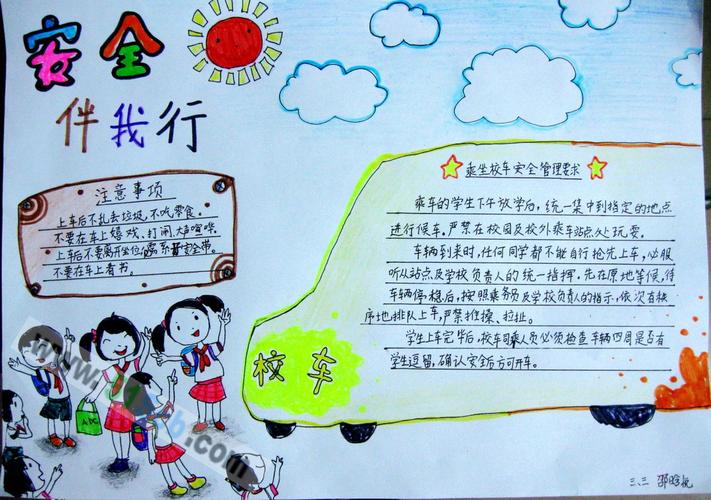 安全
伴我行
注意事项
上车后不扎去垃圾,不吃零食。
不要在车上嬉戏、打闹、大声喧哗。
上车后不要离开坐位,要系安全带。
不要在车上看书。
乘坐校车安全管理要求
乘车的学生下午放学后,统一集中到指定的地点
进行候车。严禁在校园及校外乘车站点久处玩耍。
车辆到来时,任何同学都不能自行抢先上车,必服
听从站点及学校负责人的统一指挥,先在原地等候,待
车辆停稳后,按照乘务员及学校负责人的指示,依次有秩
序地排队上车,严禁推搡、拉扯。
学生上车完毕后,校车司乘人员必须检查车辆四周是否有
学生逗留,确认安全后方可开车。
校车
ABC
三、三 邵